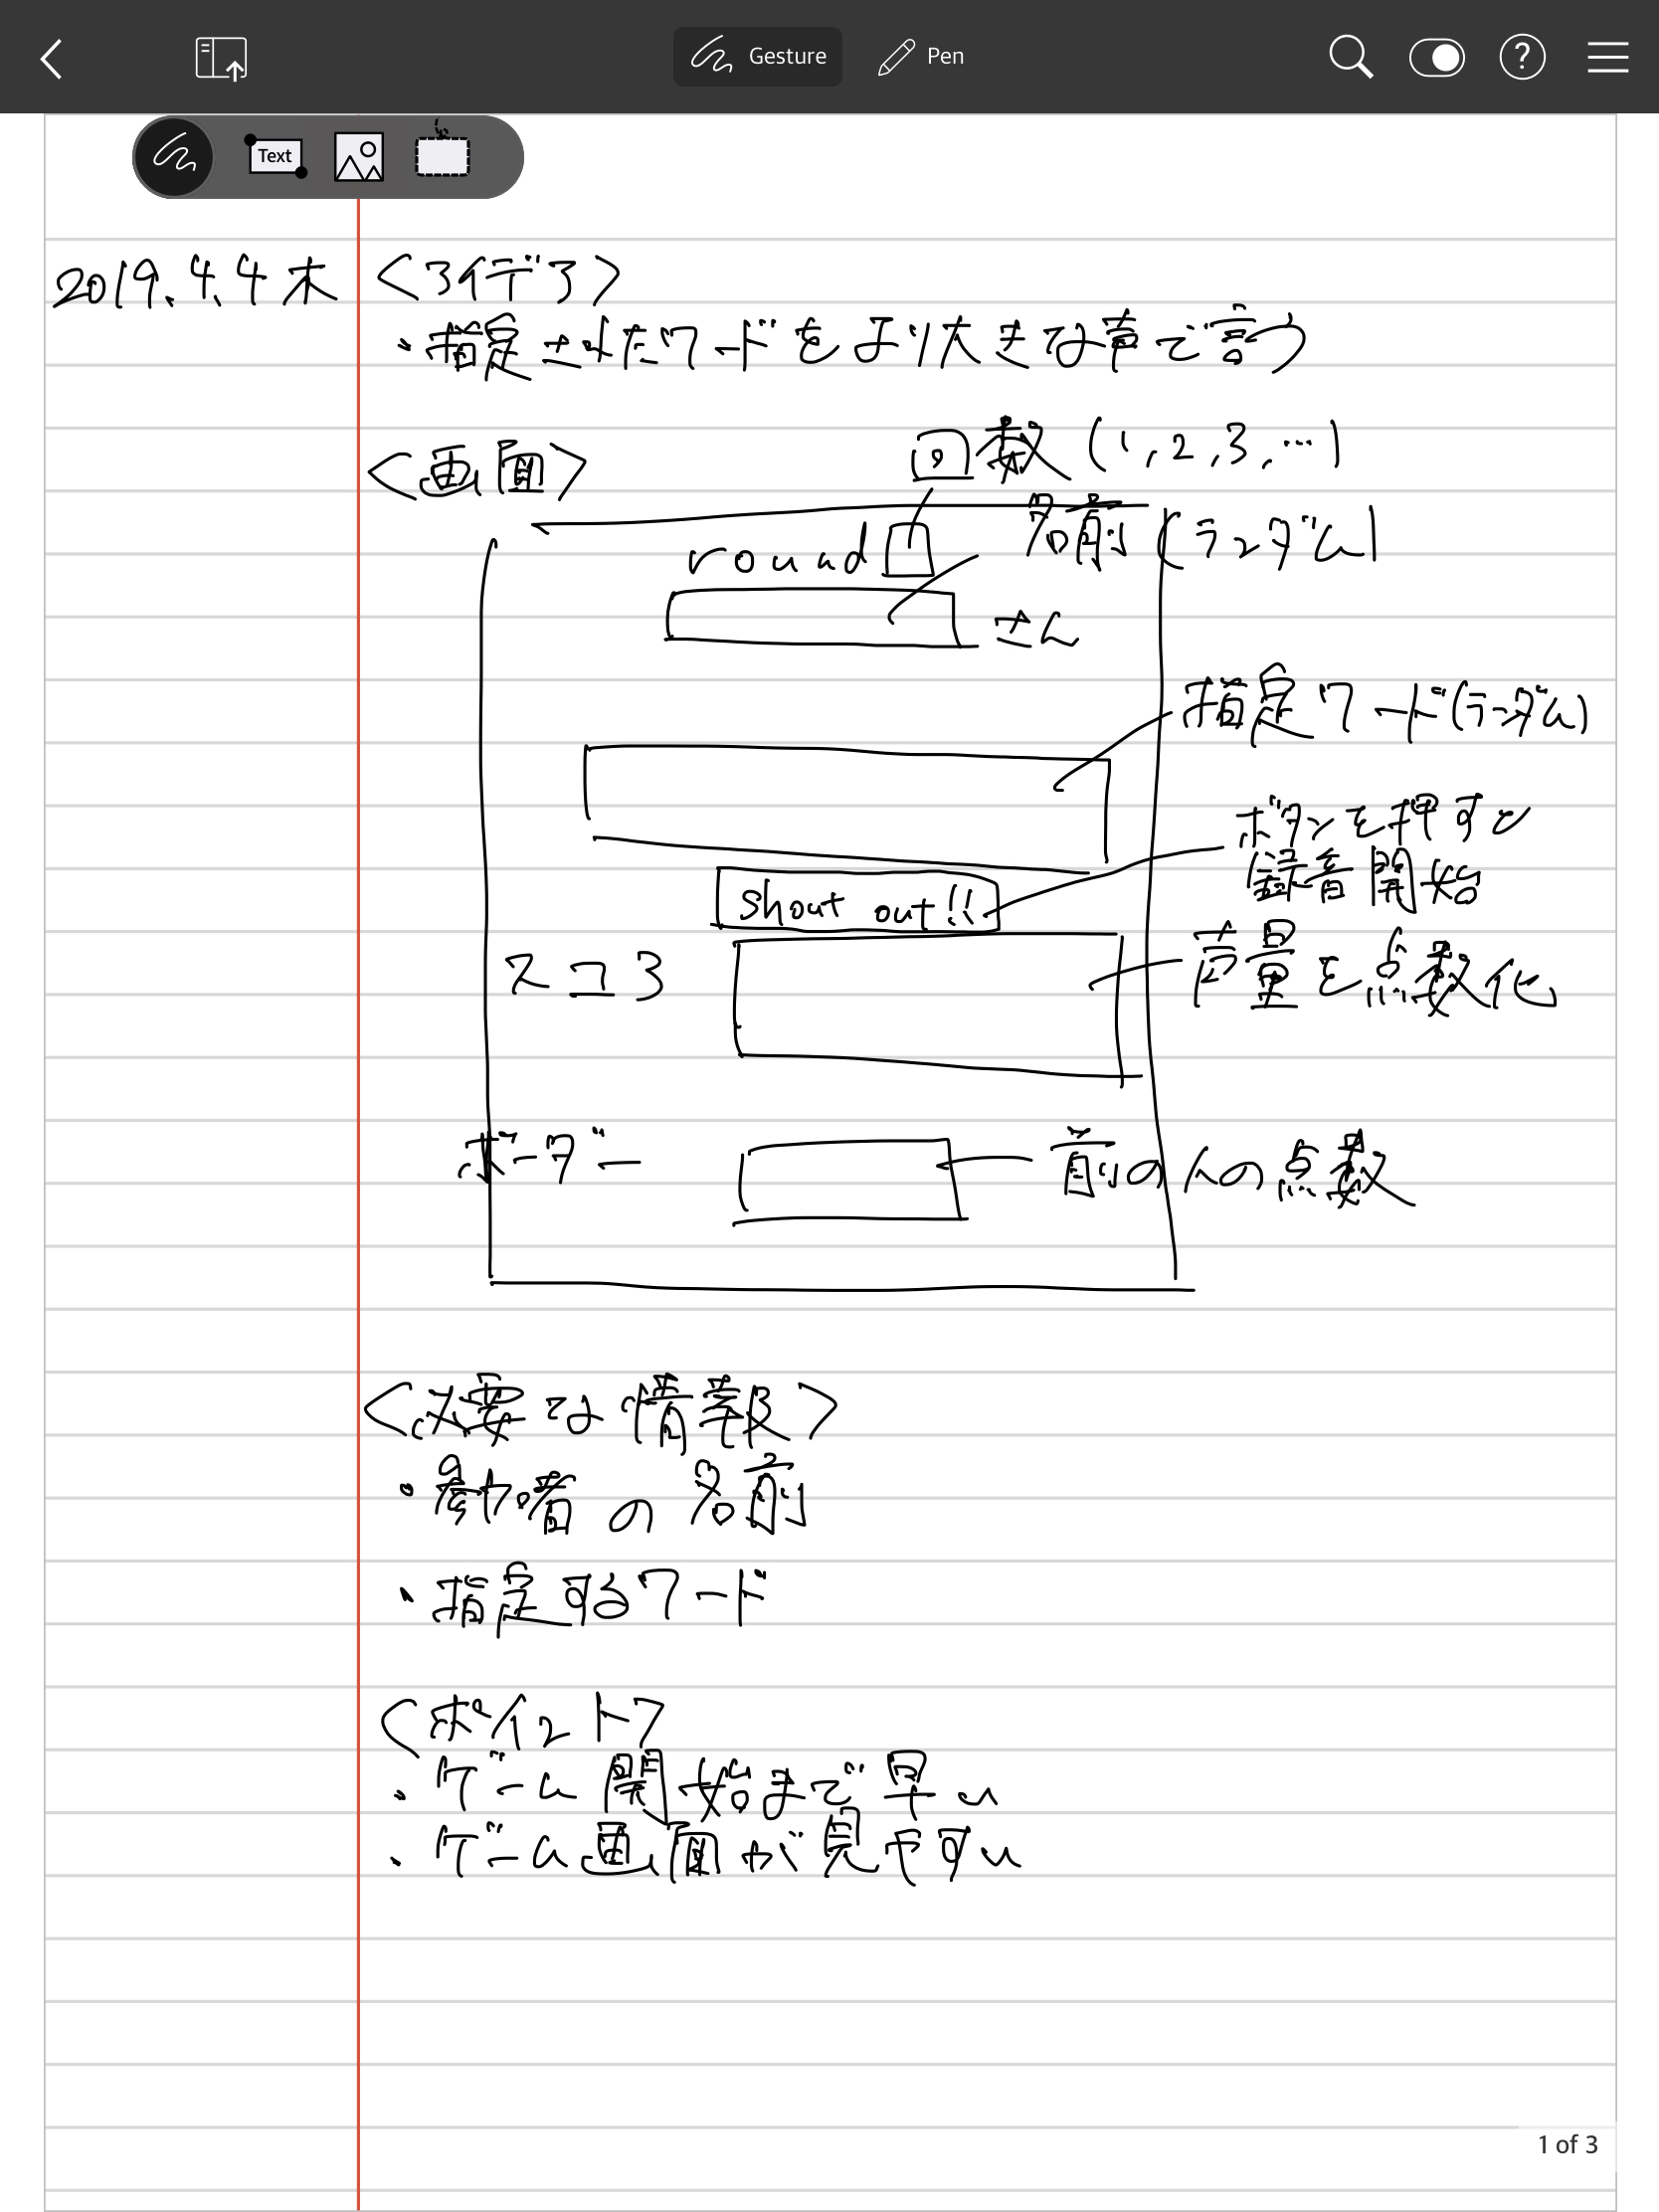 Gesture
Pen
Text
2019.4.4 木
<3行デ3>
・指定されたワードをより大きな声で言う
<画面>
回数 (1,2,3,…)
round
名前 (ランダム)
さん
指定ワード(ランダム)
ボタンを押すと
録音開始
shout out!!
スコア
声量を点数化
ボーダー
前の人の点数
<必要な情報>
・参加者の名前
・指定するワード
<ポイント>
・ゲーム開始まで早い
・ゲーム画面が見やすい
1 of 3